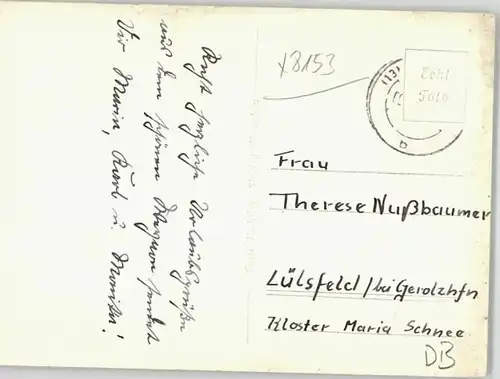 Recht herzliche Urlaubsgrüße
aus dem schönen sendet
Dir Maria, Karl u.
x 8153
(13
Echt
Foto
b
Frau
Therese Nußbaumer
Lülsfeld / bei Gerolzhfn
Kloster Maria Schnee
DB